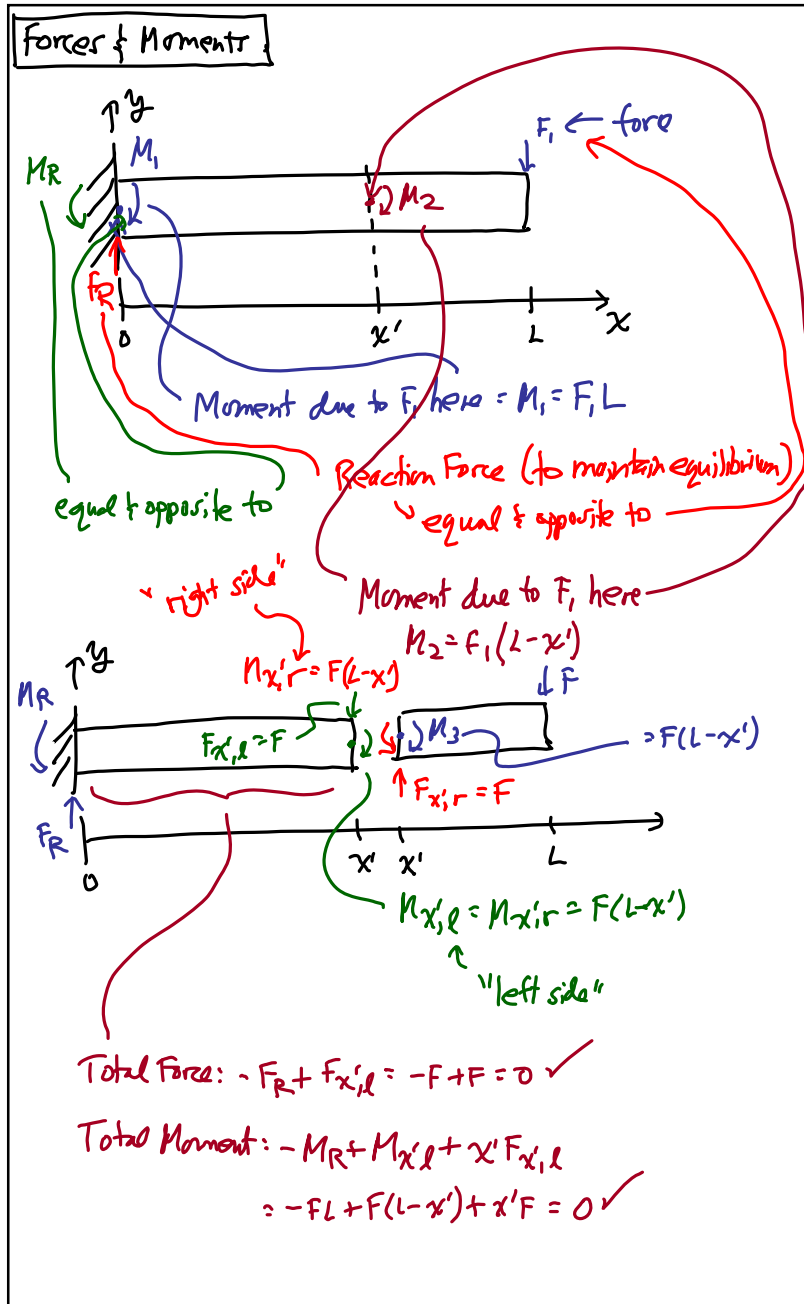 Forces & Moments
y
M₁
F₁ ← force
M_R
M₂
F_R
0
x'
L
x
Moment due to F₁ here = M₁ = F₁L
Reaction Force (to maintain equilibrium)
equal & opposite to
equal & opposite to
"right side"
Moment due to F₁ here
M₂ = F₁(L-x')
y
M_x',r = F(L-x')
F
M_R
F_x',l = F
M₃
= F(L-x')
F_x',r = F
F_R
0
x'
x'
L
M_x',l = M_x',r = F(L-x')
"left side"
Total Force: -F_R + F_x',l = -F + F = 0 ✓
Total Moment: -M_R + M_x'l + x' F_x',l
= -FL + F(L-x') + x'F = 0 ✓